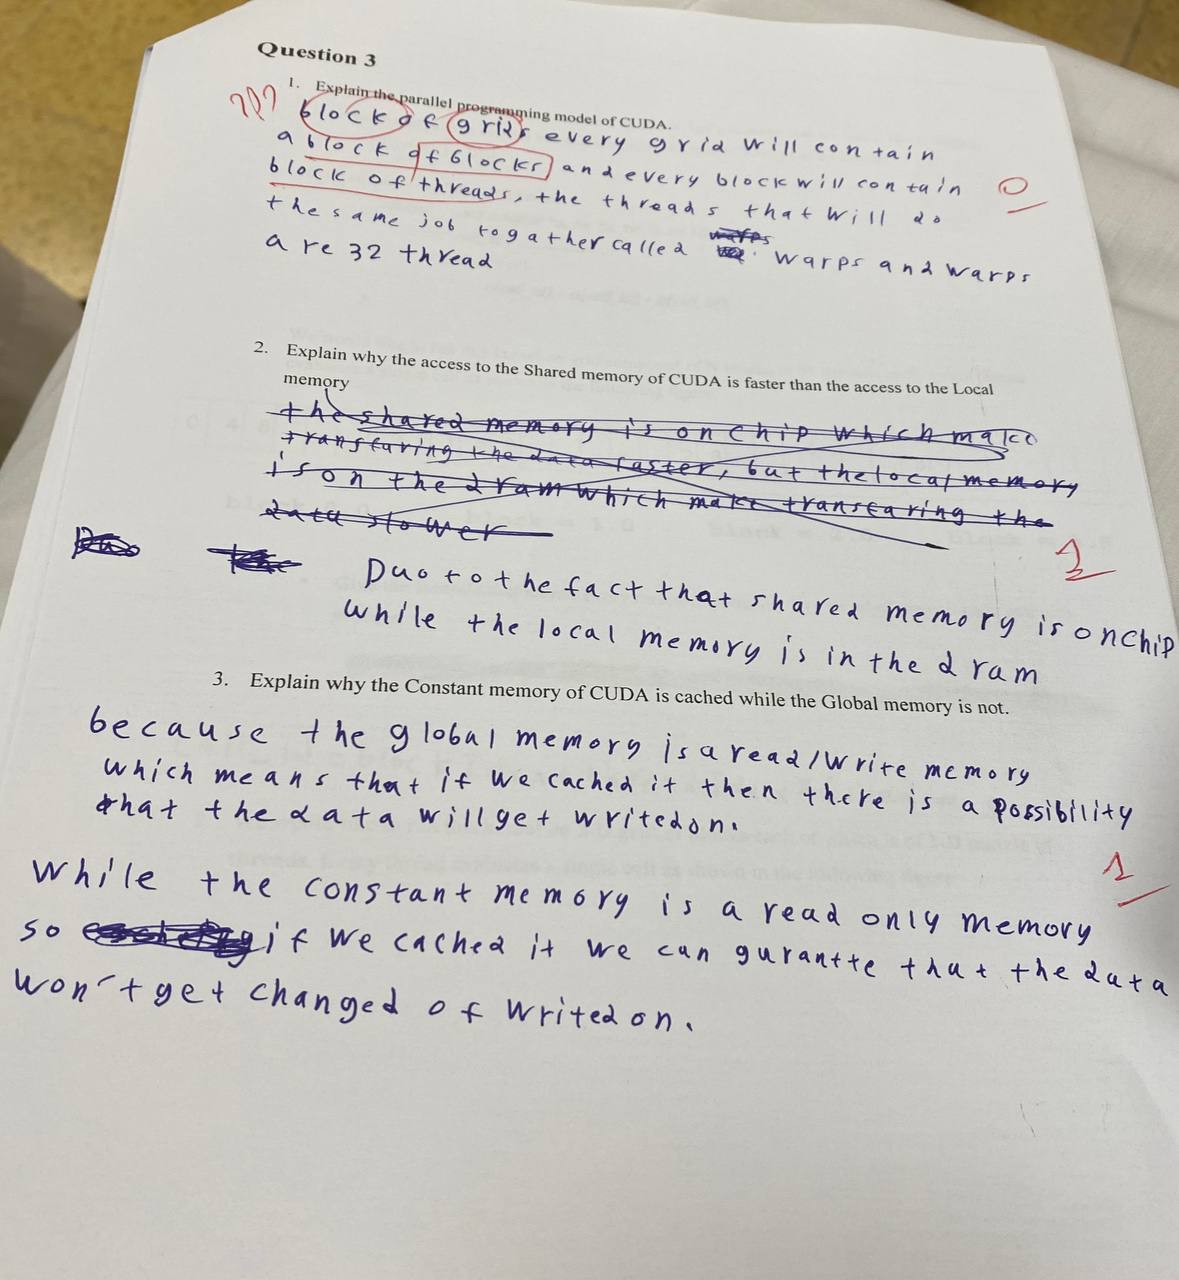 Question 3
1. Explain the parallel programming model of CUDA.
??? block of grids every grid will contain
a block of blocks and every block will contain
block of threads, the threads that will do
the same job togather called warps warps and warps
are 32 thread
0
2. Explain why the access to the Shared memory of CUDA is faster than the access to the Local
memory
the shared memory is on chip which make
transfaring the data faster, but the local memory
is on the dram which make transfaring the
data slower
1
Duo to the fact that shared memory is on chip
while the local memory is in the dram
3. Explain why the Constant memory of CUDA is cached while the Global memory is not.
because the global memory is a read/write memory
which means that if we cached it then there is a possibility
that the data will get writed on.
1
while the constant memory is a read only memory
so if we cached it we can gurantte that the data
won't get changed of writed on.